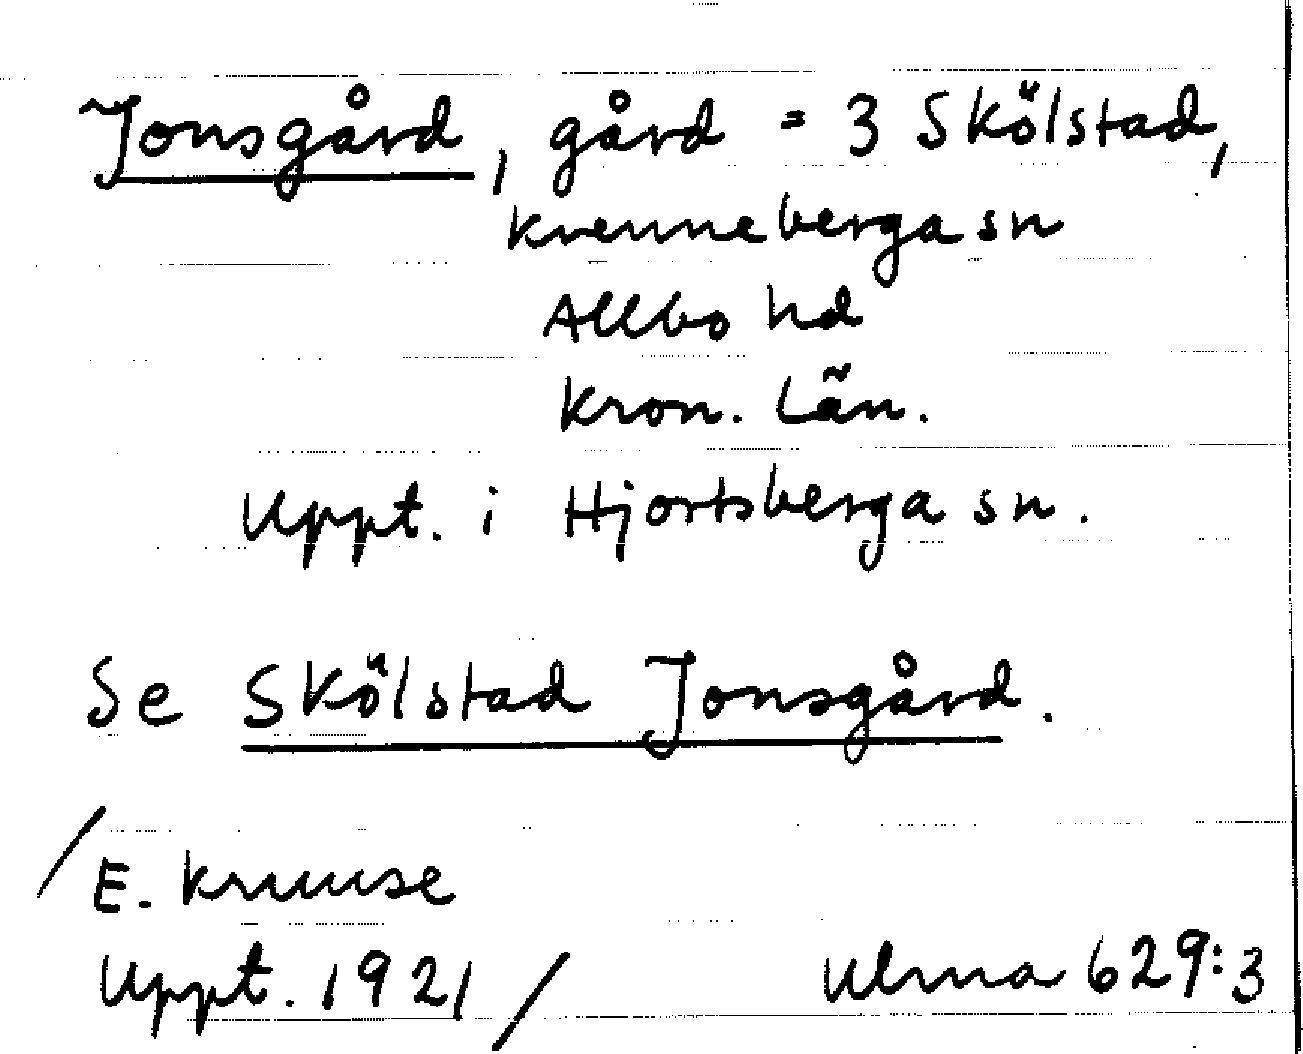 Jonsgård, gård = 3 Skölstad,
Kvenneberga sn
Allbo hd
Kron. Län.
Uppt. i Hjortsberga sn.
Se Skölstad Jonsgård.
/E. Kruuse
Uppt. 1921/ Ulma 629:3